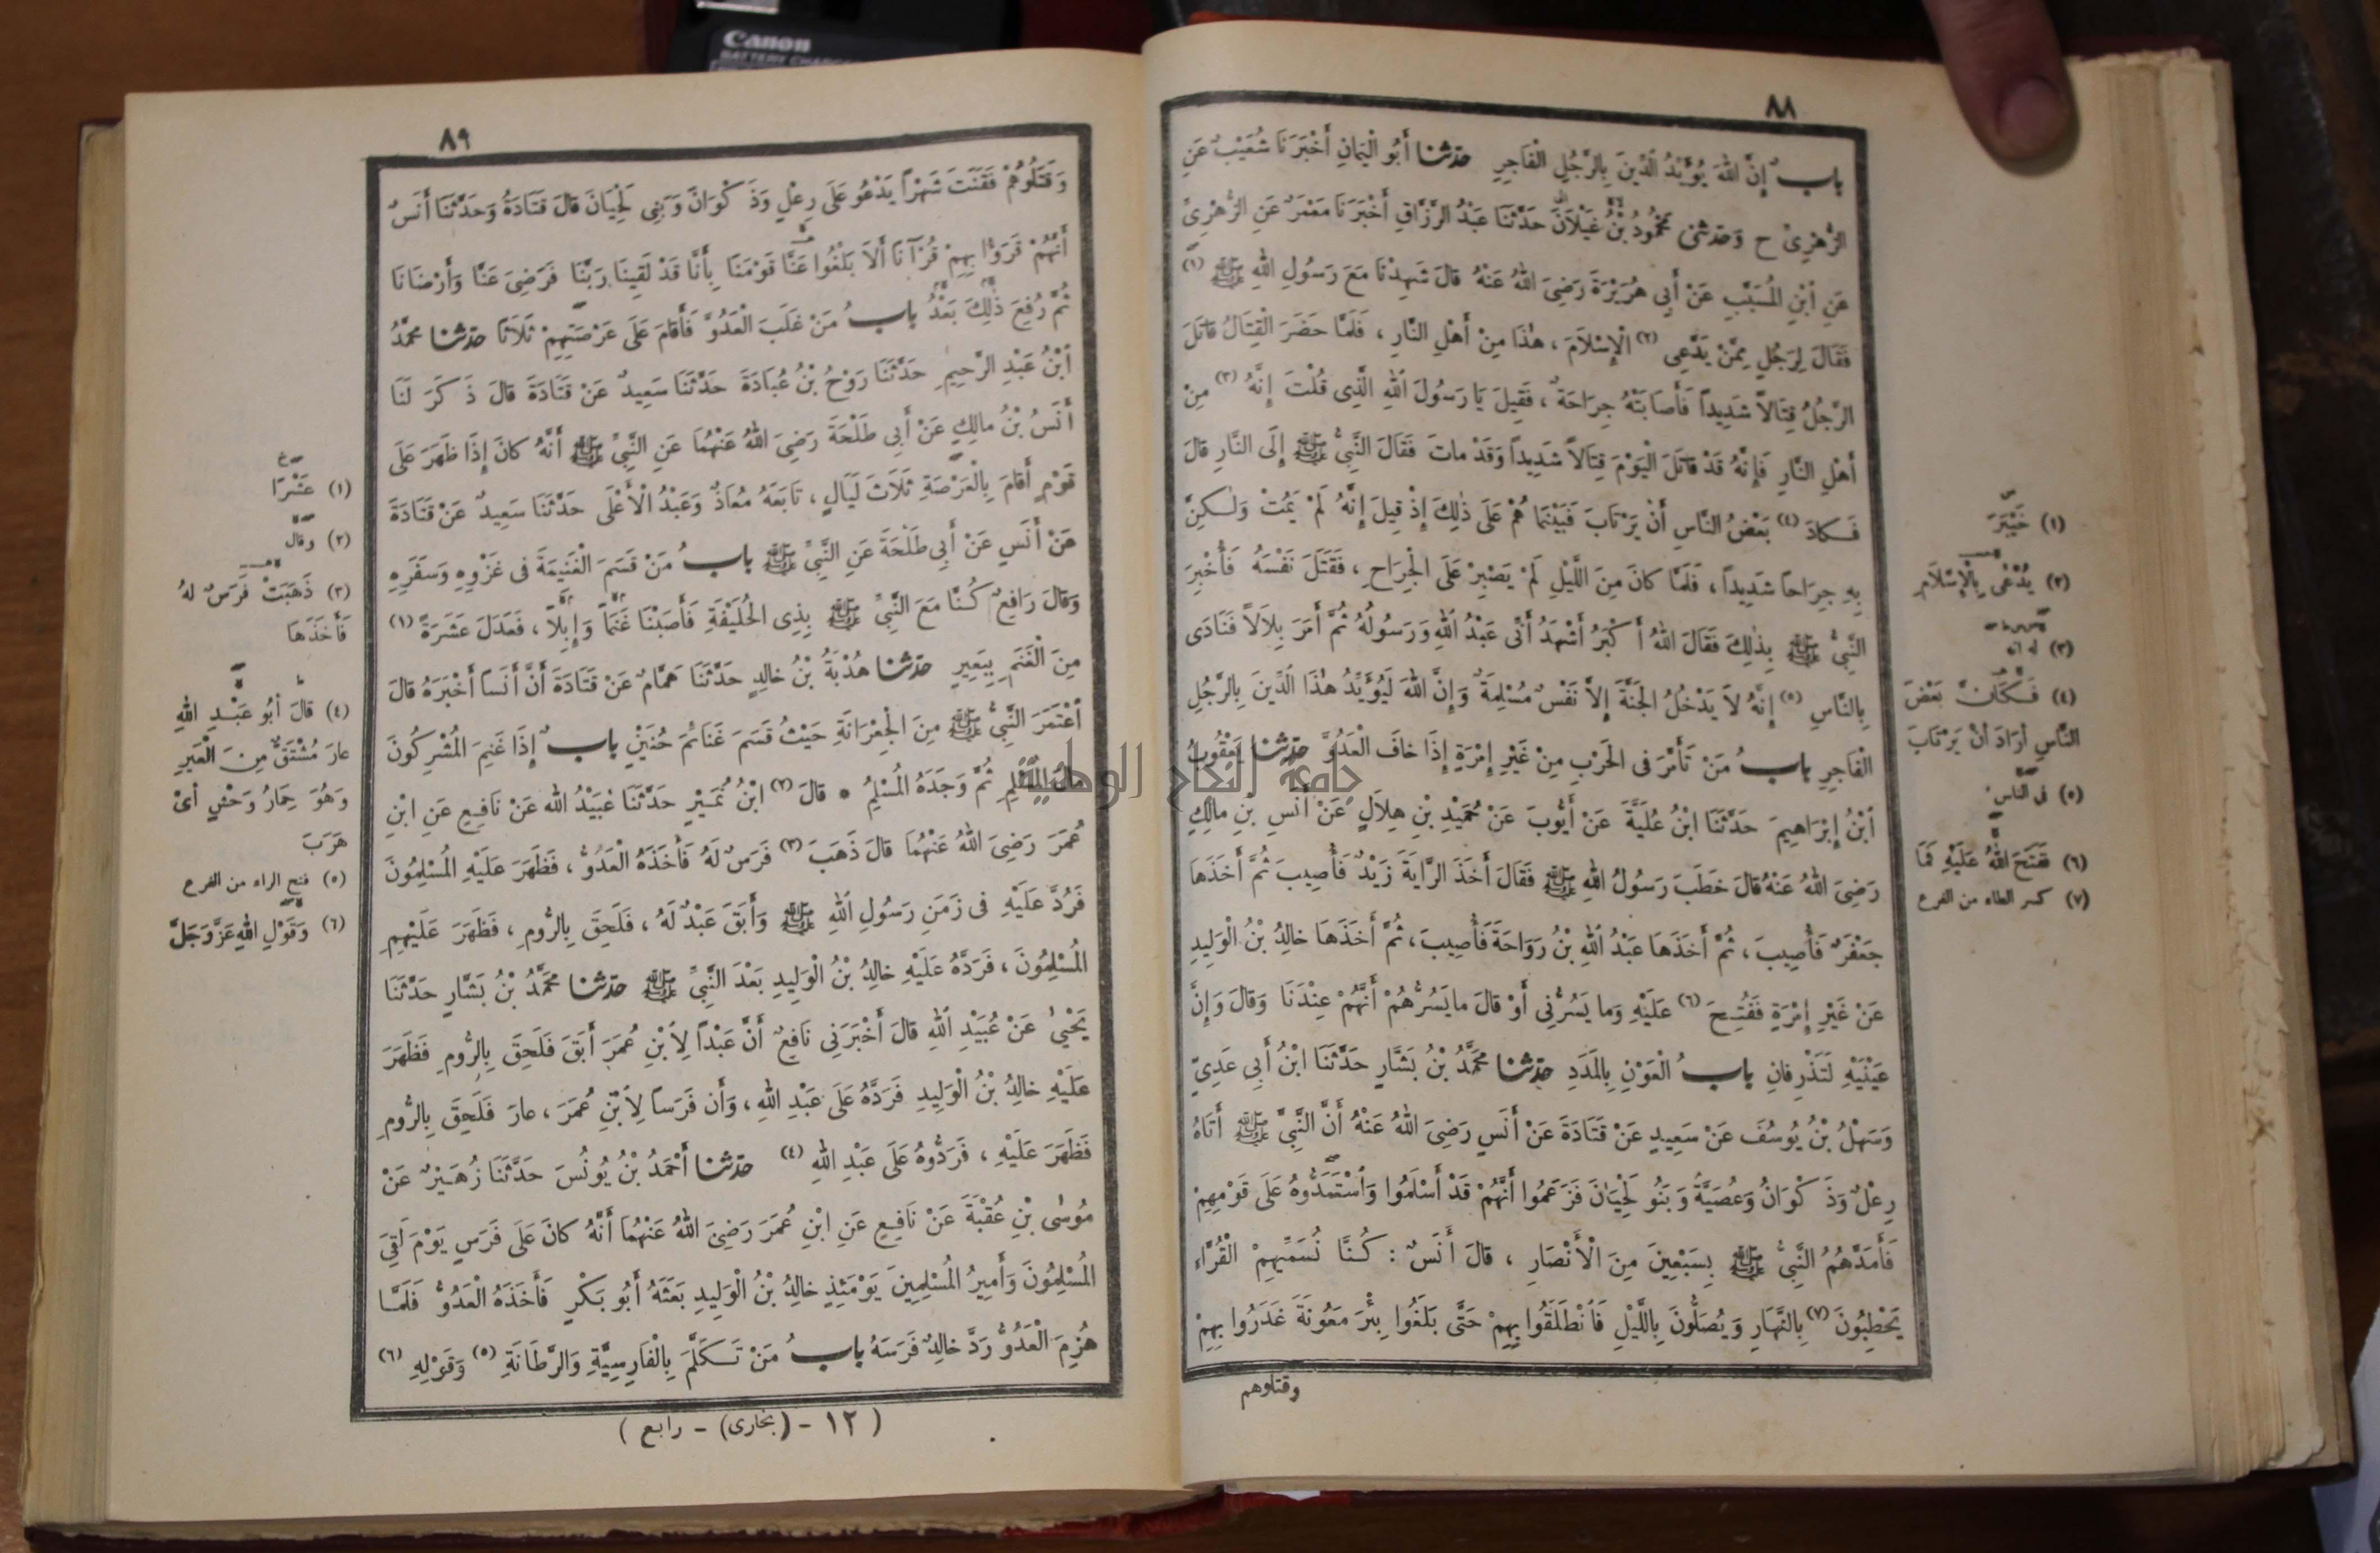 Canon
BATTERY CHARG
٨٨
بابٌ إِنَّ اللهَ يُؤَيِّدُ الدِّينَ بِالرَّجُلِ الْفَاجِرِ حَدَّثَنَا أَبُو الْيَمَانِ أَخْبَرَنَا شُعَيْبٌ عَنِ
الزُّهْرِيِّ ح وَحَدَّثَنِي مَحْمُودُ بْنُ غَيْلَانَ حَدَّثَنَا عَبْدُ الرَّزَّاقِ أَخْبَرَنَا مَعْمَرٌ عَنِ الزُّهْرِيِّ
عَنِ ابْنِ الْمُسَيَّبِ عَنْ أَبِي هُرَيْرَةَ رَضِيَ اللهُ عَنْهُ قَالَ شَهِدْنَا مَعَ رَسُولِ اللهِ ﷺ (١)
فَقَالَ لِرَجُلٍ مِمَّنْ يَدَّعِي (٢) الْإِسْلَامَ ، هٰذَا مِنْ أَهْلِ النَّارِ ، فَلَمَّا حَضَرَ الْقِتَالُ قَاتَلَ
الرَّجُلُ قِتَالاً شَدِيداً فَأَصَابَتْهُ جِرَاحَةٌ ، فَقِيلَ يَا رَسُولَ اللهِ الَّذِي قُلْتَ إِنَّهُ (٣) مِنْ
أَهْلِ النَّارِ فَإِنَّهُ قَدْ قَاتَلَ الْيَوْمَ قِتَالاً شَدِيداً وَقَدْ مَاتَ فَقَالَ النَّبِيُّ ﷺ إِلَى النَّارِ قَالَ
فَكَادَ (٤) بَعْضُ النَّاسِ أَنْ يَرْتَابَ فَبَيْنَمَا هُمْ عَلَى ذٰلِكَ إِذْ قِيلَ إِنَّهُ لَمْ يَمُتْ وَلٰكِنَّ
بِهِ جِرَاحاً شَدِيداً ، فَلَمَّا كَانَ مِنَ اللَّيْلِ لَمْ يَصْبِرْ عَلَى الْجِرَاحِ ، فَقَتَلَ نَفْسَهُ فَأُخْبِرَ
النَّبِيُّ ﷺ بِذٰلِكَ فَقَالَ اللهُ أَكْبَرُ أَشْهَدُ أَنِّي عَبْدُ اللهِ وَرَسُولُهُ ثُمَّ أَمَرَ بِلَالاً فَنَادَى
بِالنَّاسِ (٥) إِنَّهُ لَا يَدْخُلُ الْجَنَّةَ إِلَّا نَفْسٌ مُسْلِمَةٌ وَإِنَّ اللهَ لَيُؤَيِّدُ هٰذَا الدِّينَ بِالرَّجُلِ
الْفَاجِرِ بابُ مَنْ تَأَمَّرَ فِي الْحَرْبِ مِنْ غَيْرِ إِمْرَةٍ إِذَا خَافَ الْعَدُوَّ حَدَّثَنَا يَعْقُوبُ
ابْنُ إِبْرَاهِيمَ حَدَّثَنَا ابْنُ عُلَيَّةَ عَنْ أَيُّوبَ عَنْ حُمَيْدِ بْنِ هِلَالٍ عَنْ أَنَسِ بْنِ مَالِكٍ
رَضِيَ اللهُ عَنْهُ قَالَ خَطَبَ رَسُولُ اللهِ ﷺ فَقَالَ أَخَذَ الرَّايَةَ زَيْدٌ فَأُصِيبَ ثُمَّ أَخَذَهَا
جَعْفَرٌ فَأُصِيبَ ، ثُمَّ أَخَذَهَا عَبْدُ اللهِ بْنُ رَوَاحَةَ فَأُصِيبَ ، ثُمَّ أَخَذَهَا خَالِدُ بْنُ الْوَلِيدِ
عَنْ غَيْرِ إِمْرَةٍ فَفُتِحَ (٦) عَلَيْهِ وَمَا يَسُرُّنِي أَوْ قَالَ مَا يَسُرُّهُمْ أَنَّهُمْ عِنْدَنَا وَقَالَ وَإِنَّ
عَيْنَيْهِ لَتَذْرِفَانِ بابُ الْعَوْنِ بِالْمَدَدِ حَدَّثَنَا مُحَمَّدُ بْنُ بَشَّارٍ حَدَّثَنَا ابْنُ أَبِي عَدِيٍّ
وَسَهْلُ بْنُ يُوسُفَ عَنْ سَعِيدٍ عَنْ قَتَادَةَ عَنْ أَنَسٍ رَضِيَ اللهُ عَنْهُ أَنَّ النَّبِيَّ ﷺ أَتَاهُ
رِعْلٌ وَذَكْوَانُ وَعُصَيَّةُ وَبَنُو لِحْيَانَ فَزَعَمُوا أَنَّهُمْ قَدْ أَسْلَمُوا وَاسْتَمَدُّوهُ عَلَى قَوْمِهِمْ
فَأَمَدَّهُمُ النَّبِيُّ ﷺ بِسَبْعِينَ مِنَ الْأَنْصَارِ ، قَالَ أَنَسٌ : كُنَّا نُسَمِّيهِمُ الْقُرَّاءَ
يَحْطِبُونَ (٧) بِالنَّهَارِ وَيُصَلُّونَ بِاللَّيْلِ فَانْطَلَقُوا بِهِمْ حَتَّى بَلَغُوا بِئْرَ مَعُونَةَ غَدَرُوا بِهِمْ
وقتلوهم
(١) خَيْبَرَ
(٢) يُدْعَى بِالْإِسْلَامِ
(٣) له انه
(٤) فَكَأَنَّ بَعْضَ
النَّاسِ أَرَادَ أَنْ يَرْتَابَ
(٥) فى الناس
(٦) فَفَتَحَ اللهُ عَلَيْهِ فَمَا
(٧) كسر الطاء من الفرع
٨٩
وَقَتَلُوهُمْ فَقَنَتَ شَهْراً يَدْعُو عَلَى رِعْلٍ وَذَكْوَانَ وَبَنِي لِحْيَانَ قَالَ قَتَادَةُ وَحَدَّثَنَا أَنَسٌ
أَنَّهُمْ قَرَؤُا بِهِمْ قُرْآناً أَلَا بَلِّغُوا عَنَّا قَوْمَنَا بِأَنَّا قَدْ لَقِينَا رَبَّنَا فَرَضِيَ عَنَّا وَأَرْضَانَا
ثُمَّ رُفِعَ ذٰلِكَ بَعْدُ بابُ مَنْ غَلَبَ الْعَدُوَّ فَأَقَامَ عَلَى عَرْصَتِهِمْ ثَلَاثاً حَدَّثَنَا مُحَمَّدُ
ابْنُ عَبْدِ الرَّحِيمِ حَدَّثَنَا رَوْحُ بْنُ عُبَادَةَ حَدَّثَنَا سَعِيدٌ عَنْ قَتَادَةَ قَالَ ذَكَرَ لَنَا
أَنَسُ بْنُ مَالِكٍ عَنْ أَبِي طَلْحَةَ رَضِيَ اللهُ عَنْهُمَا عَنِ النَّبِيِّ ﷺ أَنَّهُ كَانَ إِذَا ظَهَرَ عَلَى
قَوْمٍ أَقَامَ بِالْعَرْصَةِ ثَلَاثَ لَيَالٍ ، تَابَعَهُ مُعَاذٌ وَعَبْدُ الْأَعْلَى حَدَّثَنَا سَعِيدٌ عَنْ قَتَادَةَ
عَنْ أَنَسٍ عَنْ أَبِي طَلْحَةَ عَنِ النَّبِيِّ ﷺ بابُ مَنْ قَسَمَ الْغَنِيمَةَ فِي غَزْوِهِ وَسَفَرِهِ
وَقَالَ رَافِعٌ كُنَّا مَعَ النَّبِيِّ ﷺ بِذِي الْحُلَيْفَةِ فَأَصَبْنَا غَنَماً وَإِبِلاً ، فَعَدَلَ عَشَرَةً (١)
مِنَ الْغَنَمِ بِبَعِيرٍ حَدَّثَنَا هُدْبَةُ بْنُ خَالِدٍ حَدَّثَنَا هَمَّامٌ عَنْ قَتَادَةَ أَنَّ أَنَساً أَخْبَرَهُ قَالَ
اعْتَمَرَ النَّبِيُّ ﷺ مِنَ الْجِعْرَانَةِ حَيْثُ قَسَمَ غَنَائِمَ حُنَيْنٍ بابٌ إِذَا غَنِمَ الْمُشْرِكُونَ
مَالَ الْمُسْلِمِ ثُمَّ وَجَدَهُ الْمُسْلِمُ * قَالَ (٢) ابْنُ نُمَيْرٍ حَدَّثَنَا عُبَيْدُ اللهِ عَنْ نَافِعٍ عَنِ ابْنِ
عُمَرَ رَضِيَ اللهُ عَنْهُمَا قَالَ ذَهَبَ (٣) فَرَسٌ لَهُ فَأَخَذَهُ الْعَدُوُّ ، فَظَهَرَ عَلَيْهِ الْمُسْلِمُونَ
فَرُدَّ عَلَيْهِ فِي زَمَنِ رَسُولِ اللهِ ﷺ وَأَبَقَ عَبْدٌ لَهُ ، فَلَحِقَ بِالرُّومِ ، فَظَهَرَ عَلَيْهِمِ
الْمُسْلِمُونَ ، فَرَدَّهُ عَلَيْهِ خَالِدُ بْنُ الْوَلِيدِ بَعْدَ النَّبِيِّ ﷺ حَدَّثَنَا مُحَمَّدُ بْنُ بَشَّارٍ حَدَّثَنَا
يَحْيَى عَنْ عُبَيْدِ اللهِ قَالَ أَخْبَرَنِي نَافِعٌ أَنَّ عَبْداً لِابْنِ عُمَرَ أَبَقَ فَلَحِقَ بِالرُّومِ فَظَهَرَ
عَلَيْهِ خَالِدُ بْنُ الْوَلِيدِ فَرَدَّهُ عَلَى عَبْدِ اللهِ ، وَأَنَّ فَرَساً لِابْنِ عُمَرَ ، عَارَ فَلَحِقَ بِالرُّومِ
فَظَهَرَ عَلَيْهِ ، فَرَدُّوهُ عَلَى عَبْدِ اللهِ (٤) حَدَّثَنَا أَحْمَدُ بْنُ يُونُسَ حَدَّثَنَا زُهَيْرٌ عَنْ
مُوسَى بْنِ عُقْبَةَ عَنْ نَافِعٍ عَنِ ابْنِ عُمَرَ رَضِيَ اللهُ عَنْهُمَا أَنَّهُ كَانَ عَلَى فَرَسٍ يَوْمَ لَقِيَ
الْمُسْلِمُونَ وَأَمِيرُ الْمُسْلِمِينَ يَوْمَئِذٍ خَالِدُ بْنُ الْوَلِيدِ بَعَثَهُ أَبُو بَكْرٍ فَأَخَذَهُ الْعَدُوُّ فَلَمَّا
هُزِمَ الْعَدُوُّ رَدَّ خَالِدٌ فَرَسَهُ بابُ مَنْ تَكَلَّمَ بِالْفَارِسِيَّةِ وَالرَّطَانَةِ (٥) وَقَوْلِهِ (٦)
( ١٢ - (بخارى) - رابع )
(١) عَشْرًا
(٢) وقال
(٣) ذَهَبَتْ فَرَسٌ لَهُ
فَأَخَذَهَا
(٤) قَالَ أَبُو عَبْدِ اللهِ
عَارَ مُشْتَقٌّ مِنَ الْعَيْرِ
وَهُوَ حِمَارُ وَحْشٍ أَيْ
هَرَبَ
(٥) فتح الراء من الفرع
(٦) وَقَوْلِ اللهِ عَزَّ وَجَلَّ
جامعة النجاح الوطنية